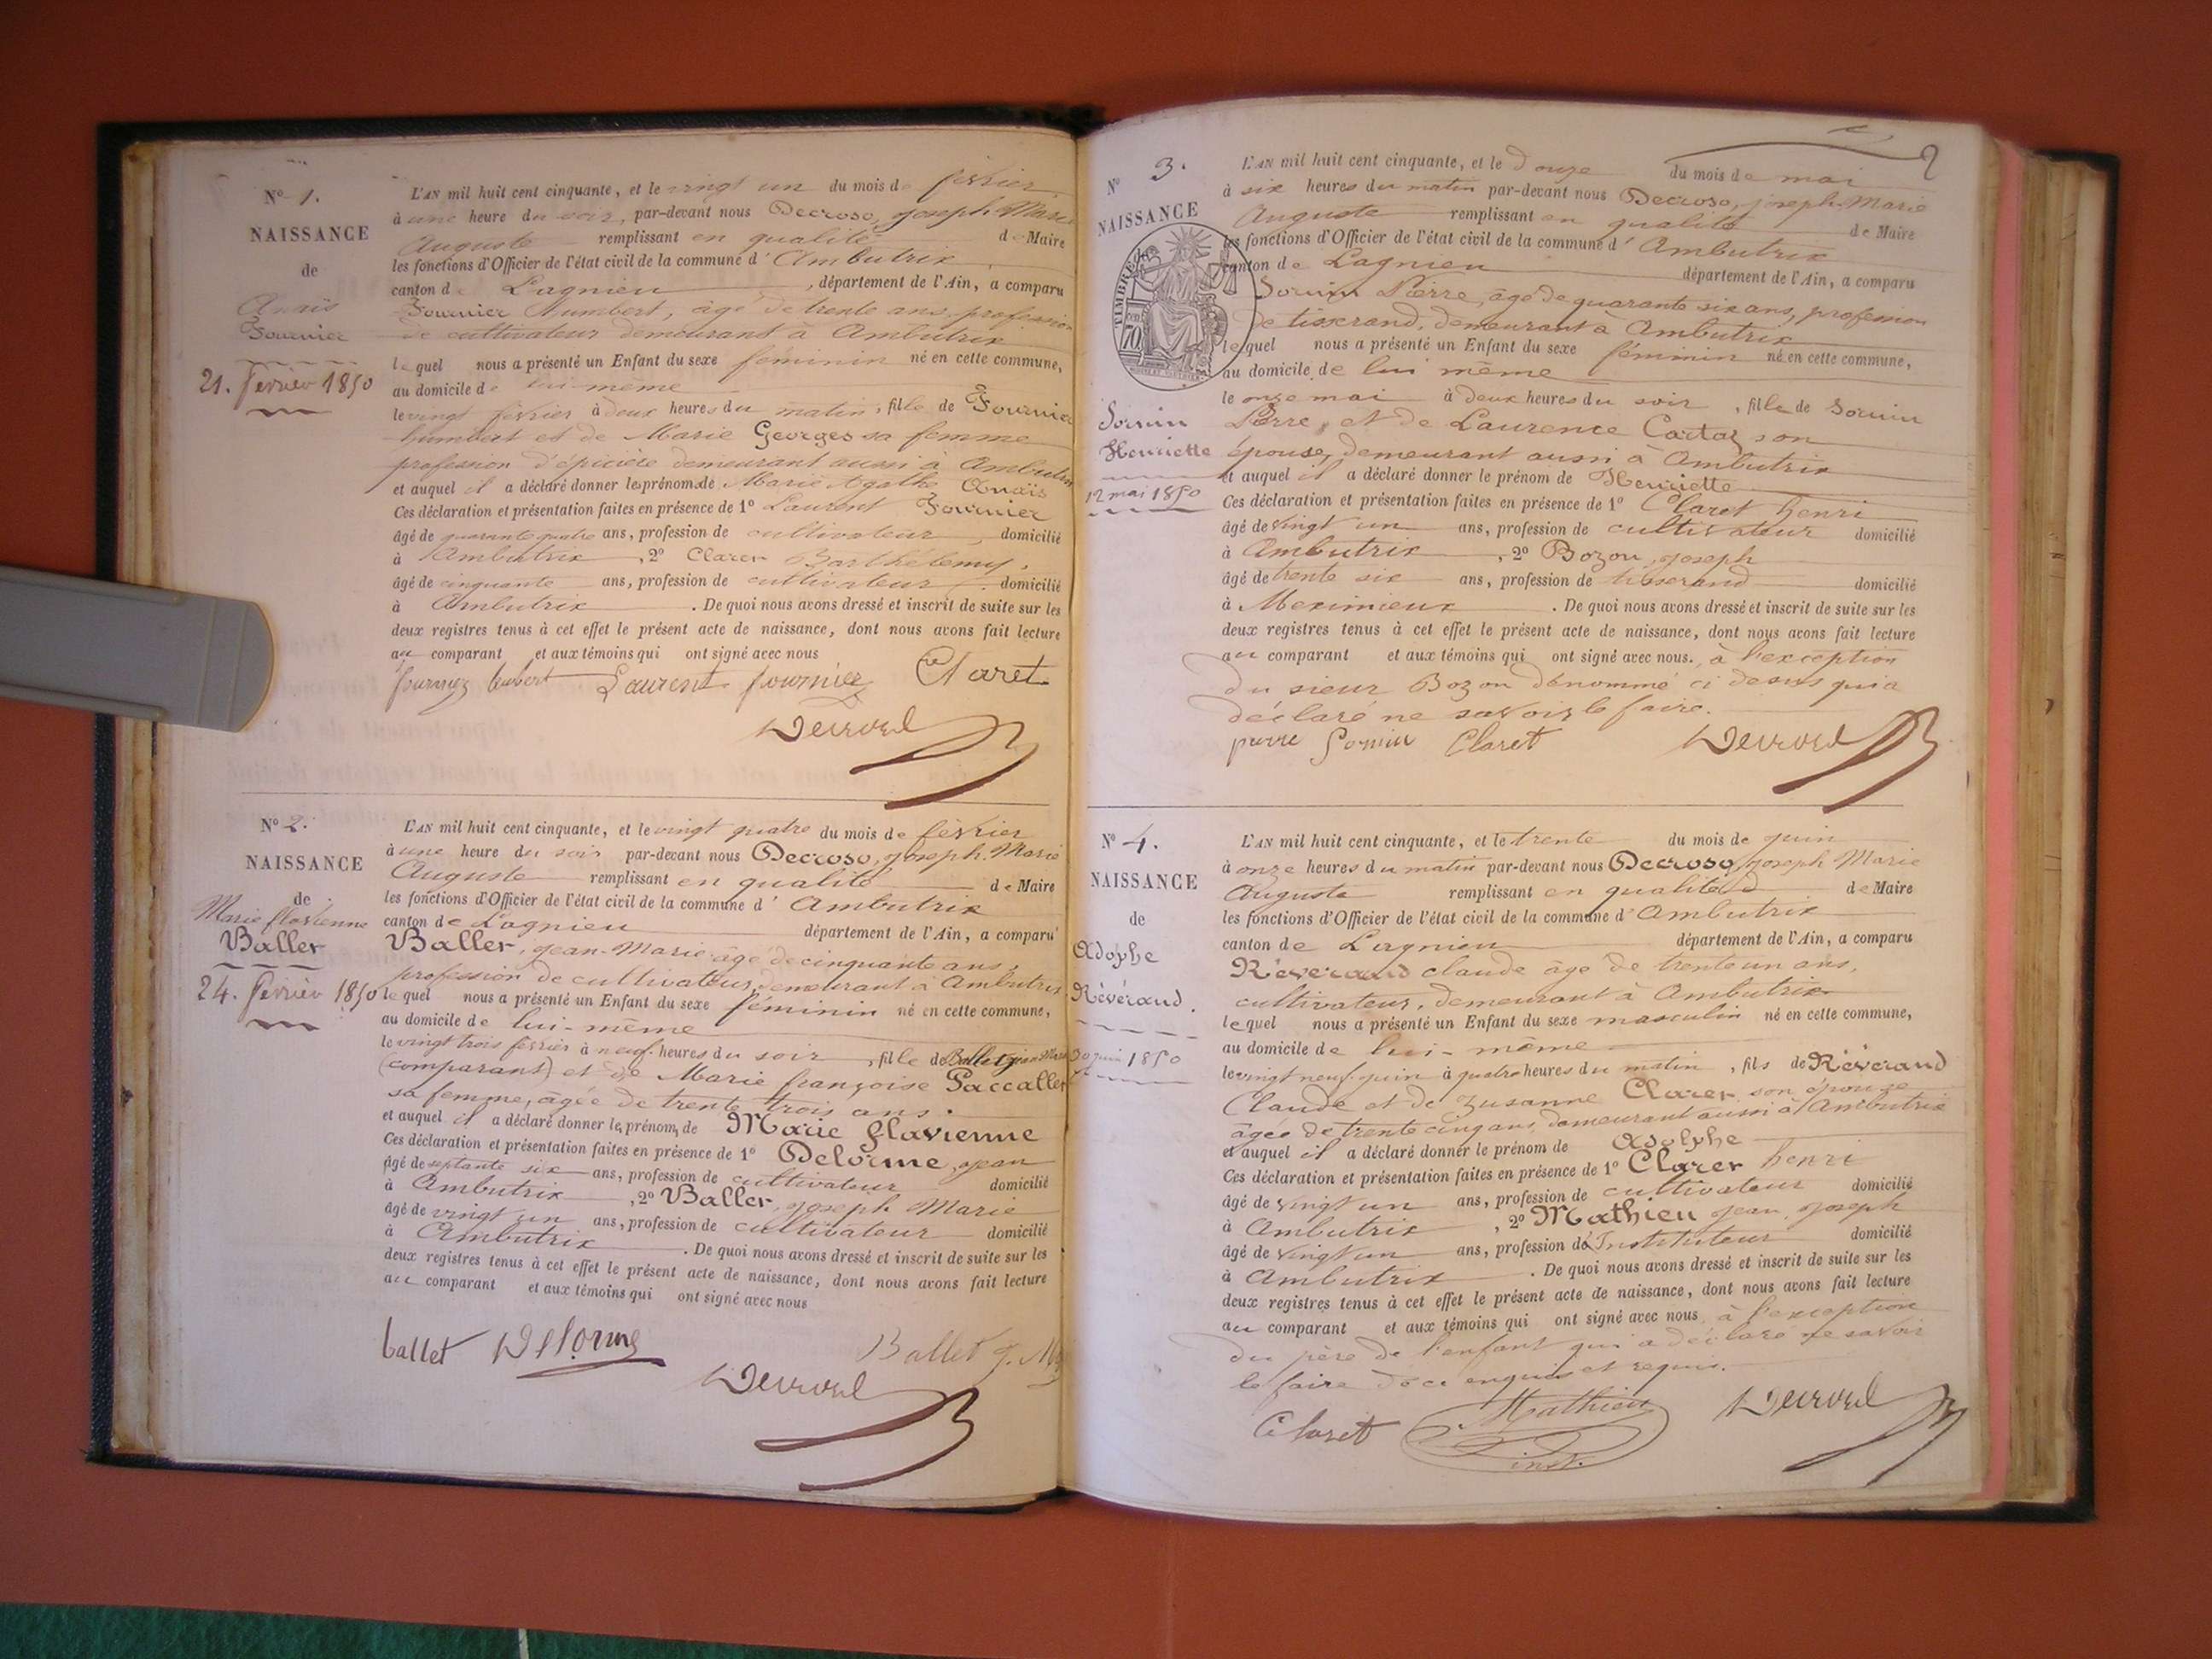 N° 1.
NAISSANCE
de
Anaïs
Fournier
21. février 1850
L'AN mil huit cent cinquante, et le vingt un du mois de février
à une heure du soir, par-devant nous Decroso, Joseph Marie
Auguste remplissant en qualité de Maire
les fonctions d'Officier de l'état civil de la commune d' Ambutrix
canton de Lagnieu, département de l'Ain, a comparu
Fournier Humbert, âgé de trente ans, profession
de cultivateur demeurant à Ambutrix
lequel nous a présenté un Enfant du sexe féminin né en cette commune,
au domicile de lui-même
le vingt février à deux heures du matin, fille de Fournier
humbert et de Marie Georges sa femme
profession d'épicière demeurant aussi à Ambutrix
et auquel il a déclaré donner les prénoms de Marie Agathe Anaïs
Ces déclaration et présentation faites en présence de 1° Laurent Fournier
âgé de quarante quatre ans, profession de cultivateur, domicilié
à Ambutrix, 2° Claret Barthélemy,
âgé de cinquante ans, profession de cultivateur domicilié
à Ambutrix. De quoi nous avons dressé et inscrit de suite sur les
deux registres tenus à cet effet le présent acte de naissance, dont nous avons fait lecture
au comparant et aux témoins qui ont signé avec nous
Laurent fournier Claret
N° 2.
NAISSANCE
de
Marie flavienne
Ballet
24. février 1850
L'AN mil huit cent cinquante, et le vingt quatre du mois de février
à une heure du soir par-devant nous Decroso, Joseph Marie
Auguste remplissant en qualité de Maire
les fonctions d'Officier de l'état civil de la commune d' Ambutrix
canton de Lagnieu département de l'Ain, a comparu
Ballet, Jean-Marie âgé de cinquante ans,
profession de cultivateur, demeurant à Ambutrix
lequel nous a présenté un Enfant du sexe féminin né en cette commune,
au domicile de lui-même
le vingt trois février à neuf heures du soir, fille de Ballet jean Marie
(comparant) et de Marie françoise Paccallet
sa femme, âgée de trente trois ans.
et auquel il a déclaré donner le prénom de Marie flavienne
Ces déclaration et présentation faites en présence de 1° Delorme, Jean
âgé de septante six ans, profession de cultivateur domicilié
à Ambutrix, 2° Ballet, Joseph Marie
âgé de vingt un ans, profession de cultivateur domicilié
à Ambutrix. De quoi nous avons dressé et inscrit de suite sur les
deux registres tenus à cet effet le présent acte de naissance, dont nous avons fait lecture
au comparant et aux témoins qui ont signé avec nous
ballet Delorme Ballet J. M
N° 3.
NAISSANCE
TIMBRE
70
Sornin
Henriette
12 mai 1850
2
L'AN mil huit cent cinquante, et le douze du mois de mai
à six heures du matin par-devant nous Decroso, joseph-Marie
Auguste remplissant en qualité de Maire
les fonctions d'Officier de l'état civil de la commune d' Ambutrix
canton de Lagnieu département de l'Ain, a comparu
Sornin Pierre, âgé de quarante six ans, profession
de tisserand, demeurant à Ambutrix
lequel nous a présenté un Enfant du sexe féminin né en cette commune,
au domicile de lui même
le onze mai à deux heures du soir, fille de Sornin
Pierre, et de Laurence Cartaz son
épouse, demeurant aussi à Ambutrix
et auquel il a déclaré donner le prénom de Henriette
Ces déclaration et présentation faites en présence de 1° Claret henri
âgé de vingt un ans, profession de cultivateur domicilié
à Ambutrix, 2° Bozon, joseph
âgé de trente six ans, profession de tisserand domicilié
à Meximieux. De quoi nous avons dressé et inscrit de suite sur les
deux registres tenus à cet effet le présent acte de naissance, dont nous avons fait lecture
au comparant et aux témoins qui ont signé avec nous. à l'exception
du sieur Bozon dénommé ci dessus qui a
déclaré ne savoir le faire.
pierre Sornin Claret
N° 4.
NAISSANCE
de
Adophe
Révérand.
30 juin 1850
L'AN mil huit cent cinquante, et le trente du mois de juin
à onze heures du matin par-devant nous Decroso, Joseph Marie
Auguste remplissant en qualité de Maire
les fonctions d'Officier de l'état civil de la commune d' Ambutrix
canton de Lagnieu département de l'Ain, a comparu
Révérand claude âgé de trente un ans,
cultivateur, demeurant à Ambutrix
lequel nous a présenté un Enfant du sexe masculin né en cette commune,
au domicile de lui-même
le vingt neuf juin à quatre heures du matin, fils de Révérand
Claude et de Zusanne Claret son épouse
âgée de trente cinq ans, demeurant aussi à Ambutrix
et auquel il a déclaré donner le prénom de Adolphe
Ces déclaration et présentation faites en présence de 1° Claret henri
âgé de vingt un ans, profession de cultivateur domicilié
à Ambutrix, 2° Mathieu Jean Joseph
âgé de vingt un ans, profession d'Instituteur domicilié
à Ambutrix. De quoi nous avons dressé et inscrit de suite sur les
deux registres tenus à cet effet le présent acte de naissance, dont nous avons fait lecture
au comparant et aux témoins qui ont signé avec nous, à l'exception
du père de l'enfant qui a déclaré ne savoir
le faire de ce enquis et requis.
Claret Mathieu
inst.